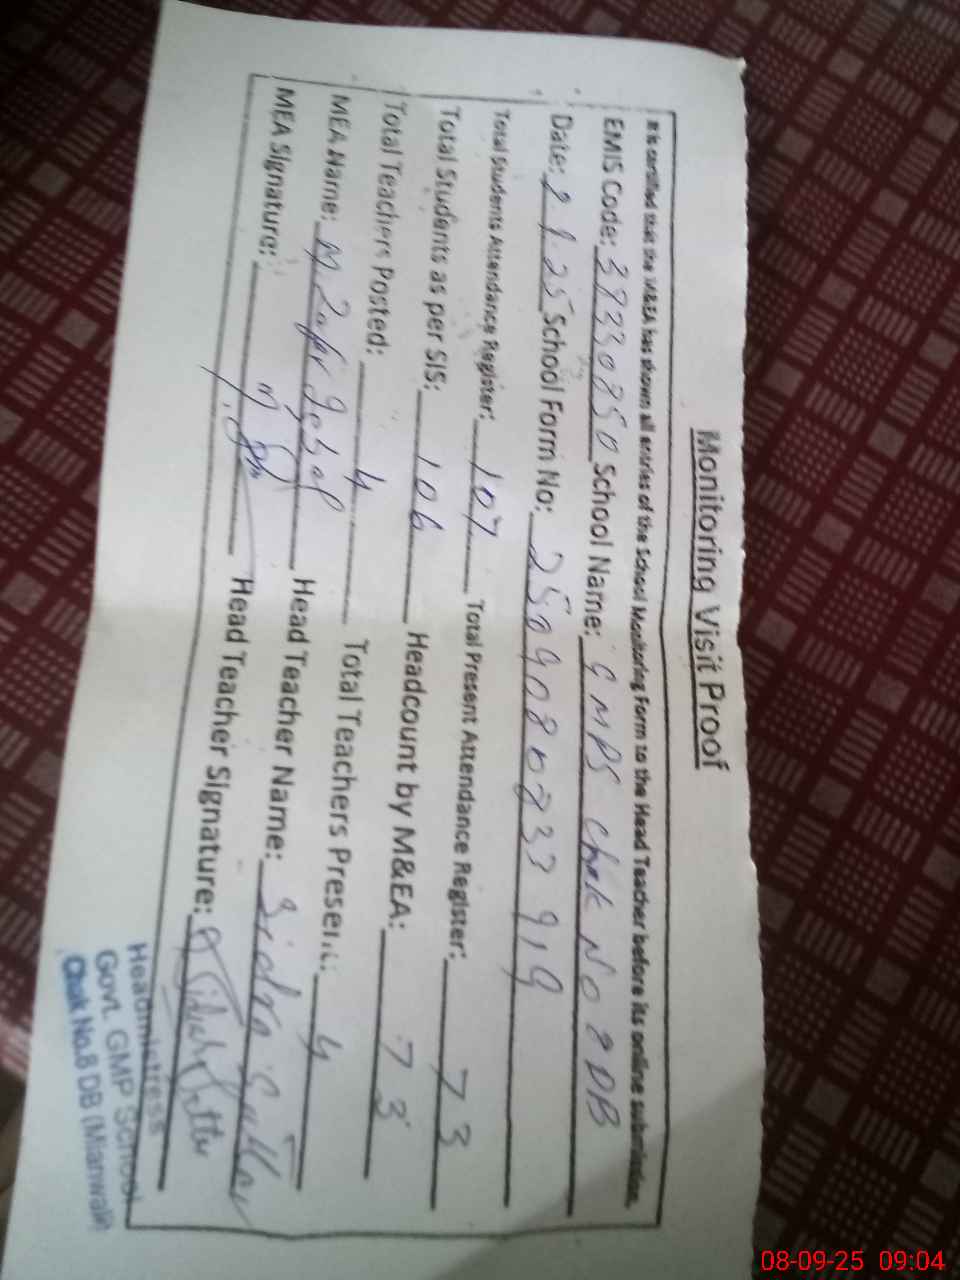 Monitoring Visit Proof
It is certified that the M&EA has shown all entries of the School Monitoring Form to the Head Teacher before its online submission.
EMIS Code: 38330850 School Name: GMPS Chak No 8 DB
Date: 8.9.25 School Form No: 2509080833919
Total Students Attendance Register: 107 Total Present Attendance Register: 73
Total Students as per SIS: 106 Headcount by M&EA: 73
Total Teachers Posted: 4 Total Teachers Present: 4
MEA Name: M Zafar Iqbal Head Teacher Name: Sidra Sattar
MEA Signature: Head Teacher Signature:
Headmistress
Govt. GMP School
Chak No.8 DB (Mianwali)
08-09-25 09:04